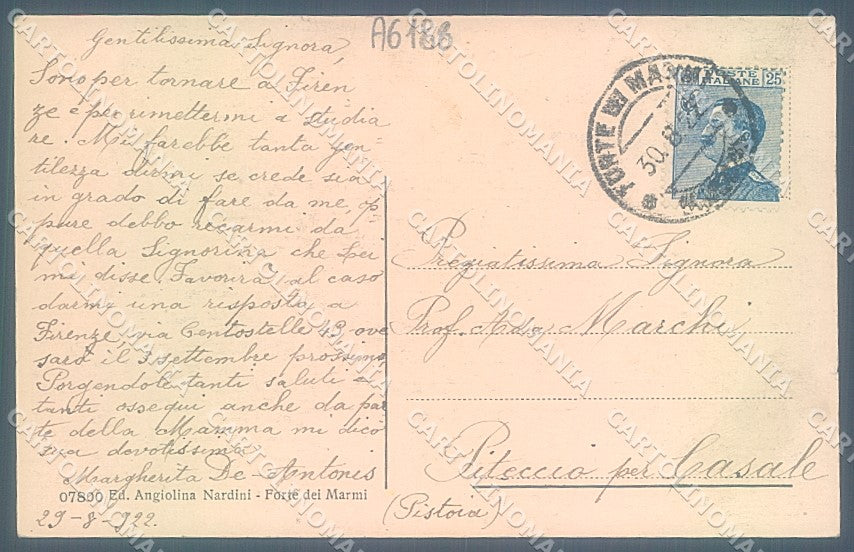 A6188
Gentilissima Signora,
Sono per tornare a Firen
ze e per rimettermi a studia
re. Mi farebbe tanta gen-
tilezza dirmi se crede sia
in grado di fare da me, op
pure debbo recarmi da
quella Signorina che Lei
mi disse. Favorirà al caso
darmi una risposta a
Firenze via Centostelle 43, ove
sarò il 3 settembre prossimo
Porgendole tanti saluti e
tanti ossequi anche da par
te della Mamma mi dico
sua devotissima
Margherita De-Antonis
07800 Ed. Angiolina Nardini - Forte dei Marmi
29-8-922.
POSTE ITALIANE 25
FORTE DEI MARMI
30.8.22
Pregiatissima Signora
Prof. Ada Marchi
Piteccio per Casale
(Pistoia)
CARTOLINOMANIA